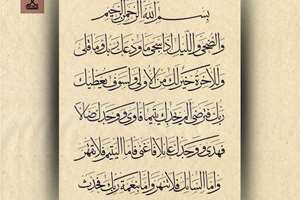 بسم الله الرحمن الرحيم
والضحى والليل إذا سجى ما ودعك ربك وما قلى
وللآخرة خير لك من الأولى ولسوف يعطيك
ربك فترضى ألم يجدك يتيما فآوى ووجدك ضالا
فهدى ووجدك عائلا فأغنى فأما اليتيم فلا تقهر
وأما السائل فلا تنهر وأما بنعمة ربك فحدث